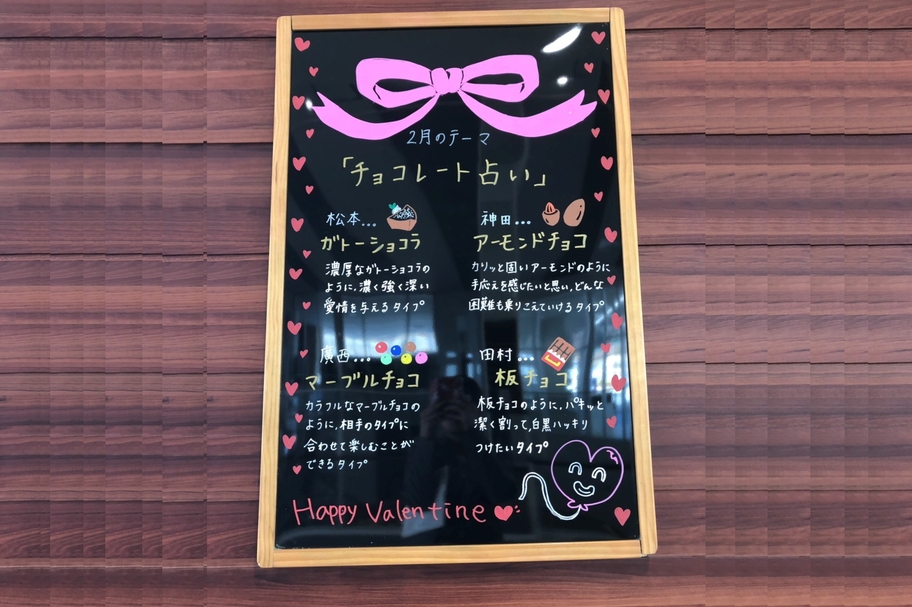 2月のテーマ
「チョコレート占い」
松本...
ガトーショコラ
濃厚なガトーショコラの
ように、濃く強く深い
愛情を与えるタイプ
神田...
アーモンドチョコ
カリッと固いアーモンドのように
手応えを感じたいと思い、どんな
困難も乗りこえていけるタイプ
廣西...
マーブルチョコ
カラフルなマーブルチョコの
ように、相手のタイプに
合わせて楽しむことが
できるタイプ
田村...
板チョコ
板チョコのように、パキッと
潔く割って、白黒ハッキリ
つけたいタイプ
Happy Valentine